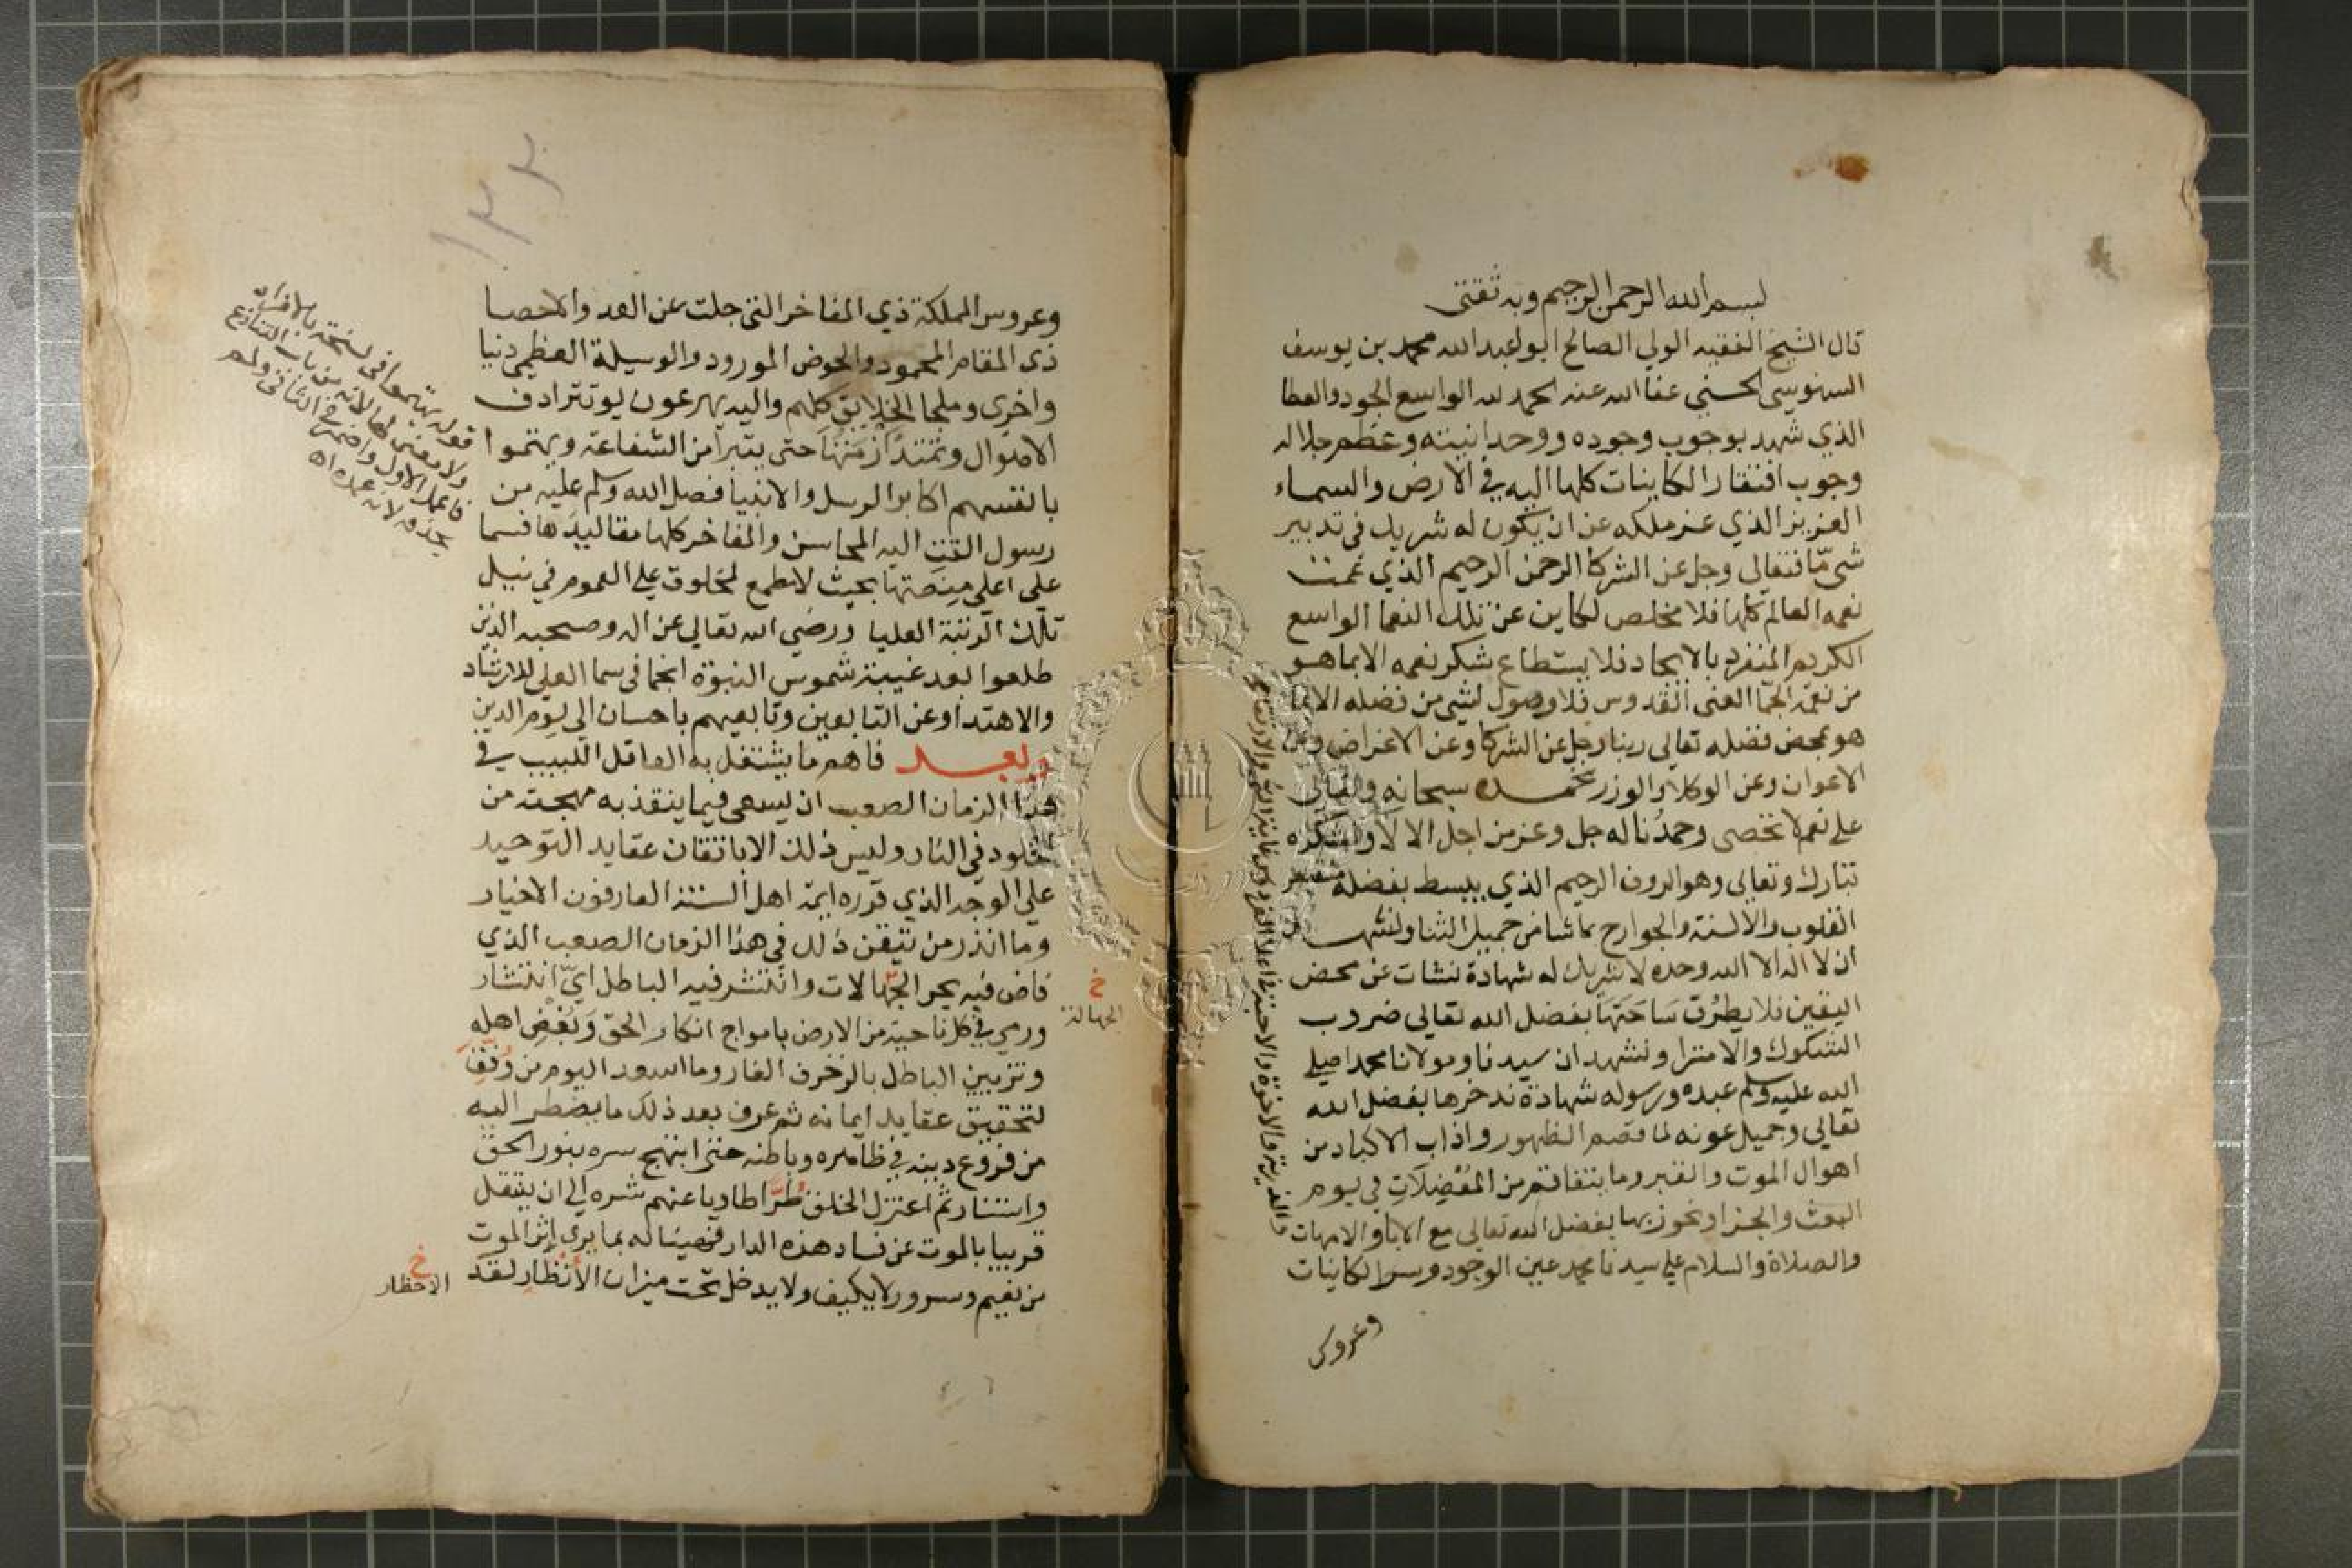 بسم الله الرحمن الرحيم وبه ثقتي
قال الشيخ الفقيه الولي الصالح ابو عبد الله محمد بن يوسف
السنوسي الحسني عفا الله عنه الحمد لله الواسع الجود والعطا
الذي شهد بوجوب وجوده ووحدانيته وعظم جلاله
وجوب افتقار الكاينات كلها اليه في الارض والسماء
العزيز الذي عز ملكه عن ان يكون له شريك في تدبير
شي مّا فتعالى وجل عن الشركا الرحمن الرحيم الذي عمت
نعمه العالم كلها فلا مخلص لكاين عن تلك النعما الواسع
الكريم المنفرد بالايجاد فلا يستطاع شكر نعمه الا بما هو
من نعمه الجما الغنى القدوس فلا وصول لشي من فضله الا بما
هو بمحض فضله تعالى ربنا وجل عن الشركا وعن الاغراض وعن
الاعوان وعن الوكلا والوزر نحمده سبحانه وتعالى
على نعم لا تحصى وحمدُنا له جل وعز من اجل الالا ونشكره
تبارك وتعالى وهو الروف الرحيم الذي يبسط بفضله منقبض
القلوب والالسنة والجوارح بما شا من جميل الثنا ونشهد
ان لا اله الا الله وحده لا شريك له شهادة نشات عن محض
اليقين فلا يطرُق سَاحَتَهَا بفضل الله تعالى ضروب
الشكوك والامترا ونشهد ان سيدنا ومولانا محمدا صلى
الله عليه وسلم عبده ورسوله شهادة ندخرها بفضل الله
تعالى وجميل عونه لما قصم الظهور واذاب الاكباد من
اهوال الموت والقبر وما يتفاقم من المُعْضِلَاتِ في يوم
البعث والجزا ونحوز بها بفضل الله تعالى مع الابا والامهات
والذرية والاخوة والاحبة في اعلا الفردوس غاية
والصلاة والسلام على سيدنا محمد عين الوجود وسر الكاينات
وعروس
وعروس المملكة ذي المفاخر التي جلت عن العد والاحصا
ذي المقام المحمود والحوض المورود والوسيلة العظمى دنيا
واخرى وملجا الخلايق كلهم واليه يهرعون يوم تترادف
الاهوال وتمتد ازمنتها حتى يتبرا من الشفاعة ويهتموا
بانفسهم اكابر الرسل والانبيا فصلى الله وسلم عليه من
رسول القت اليه المحاسن والمفاخر كلها مقاليدَها فسما
على اعلى مِنصتها بحيث لا مطمع لمخلوق على العموم في نيل
تلك الرتبة العليا ورضي الله تعالى عن اله وصحبه الذين
طلعوا بعد غيبة شموس النبوة انجما في سما العلى للارشاد
والاهتدا وعن التابعين وتابعيهم باحسان الى يوم الدين
وبعد فاهم ما يشتغل به العاقل اللبيب في
هذا الزمان الصعب ان يسعى فيما ينقذ به مهجته من
الخلود في النار وليس ذلك الا باتقان عقايد التوحيد
على الوجه الذي قرره ايمة اهل السنة العارفون الاخيار
وما انذر من يتقن ذلك في هذا الزمان الصعب الذي
فاض فيه بحر الجهالات وانتشر فيه الباطل ايّ انتشار
خ
الجهالة
ورمي في كل ناحية من الارض بامواج انكار الحق وَبُغْضِ اهله
وتزيين الباطل بالزخرف الغار وما اسعد اليوم من وُفِّقَ
لتحقيق عقايد ايمانه ثم عرف بعد ذلك ما يضطر اليه
من فروع دينه في ظاهره وباطنه حتى ابتهج سره بنور الحق
واستنار ثم اعتزل الخلق طُرًّا طاويا عنهم شره الى ان ينتقل
قريبا بالموت عن فساد هذه الدار فهنيئا له بما يرى إثر الموت
من نعيم وسرور لا يكيف ولا يدخل تحت ميزان الأنظار لقد
خ
الاخطار
قوله يهتموا في نسخة بالافراد
ولا معنى لها لانه من باب التنازع
فاعمل الاول واضمر في الثاني ولم
يحذف لانه عمده اه
١٣٢